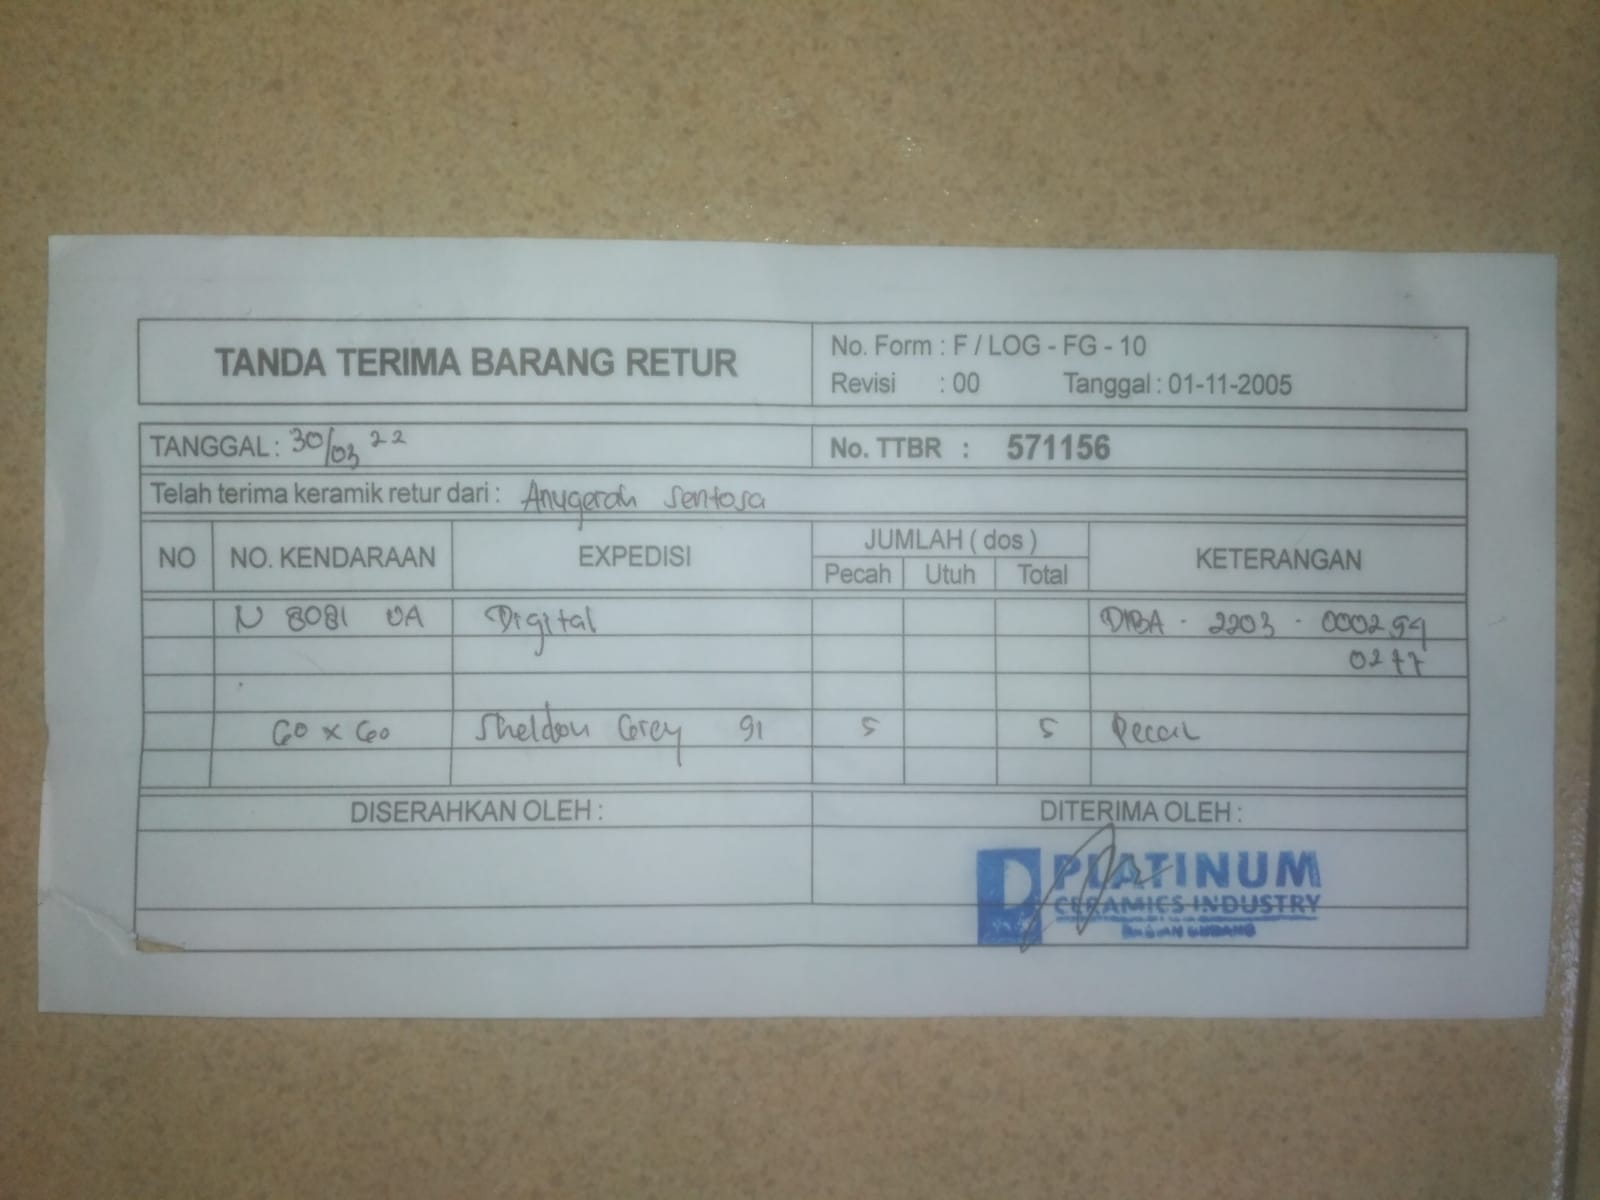 TANDA TERIMA BARANG RETUR
No. Form : F / LOG - FG - 10
Revisi : 00 Tanggal : 01-11-2005
TANGGAL : 30/03 22
No. TTBR : 571156
Telah terima keramik retur dari : Anugerah Sentosa
NO NO. KENDARAAN EXPEDISI JUMLAH ( dos ) KETERANGAN
Pecah Utuh Total
N 8081 UA Digital DIBA - 2203 - 000254
0277
60 x 60 Sheldon Grey 91 5 5 Pecah
DISERAHKAN OLEH : DITERIMA OLEH :
PLATINUM
CERAMICS INDUSTRY
BAGIAN GUDANG